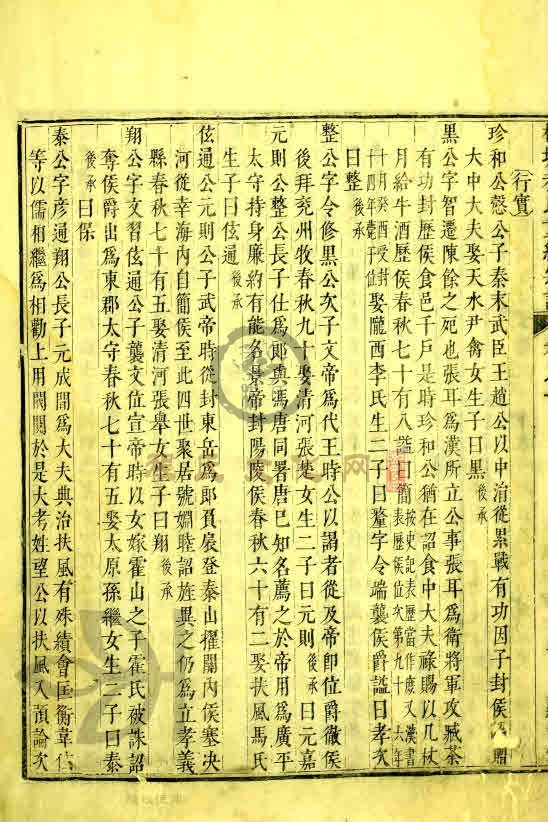 行實
珍和公慤公子秦末武臣王趙公以中涓從累戰有功因子封侯贈
大中大夫娶天水尹禽女生子曰黑後承
黑公字智遷陳餘之死也張耳為漢所立公事張耳為衛將軍攻臧荼
有功封歷侯食邑千戶是時珍和公猶在詔食中大夫祿賜以几杖
月給牛酒歷侯春秋七十有八謚曰簡按史記表歷當作磿又漢書表歷侯位次第九十六年
十月癸酉受封十四年薨于位娶隴西李氏生二子曰釐字令端襲侯爵謚曰孝次
曰整後承
整公字令修黑公次子文帝為代王時公以謁者從及帝即位爵徹侯
後拜兗州牧春秋九十娶清河張楚女生二子曰元則後承曰元嘉
元則公整公長子仕為郎與馮唐同署唐已知名薦之於帝用為廣平
太守持身廉約有能名景帝封陽陵侯春秋六十有二娶扶風馬氏
生子曰伭通後承
伭通公元則公子武帝時從封東岳為郎負扆登泰山擢關內侯塞決
河從幸海內自簡侯至此四世聚居號嫺睦詔旌異之仍為立孝義
縣春秋七十有五娶清河張舉女生子曰翔後承
翔公字文習伭通公子襲文位宣帝時以女嫁霍山之子霍氏被誅詔
奪侯爵出為東郡太守春秋七十有五娶太原孫繼女生二子曰泰
後承曰保
泰公字彥通翔公長子元成間為大夫典治扶風有殊績會匡衡韋
等以儒相繼為相勸上用閥閱於是大考姓望公以扶風入預論次